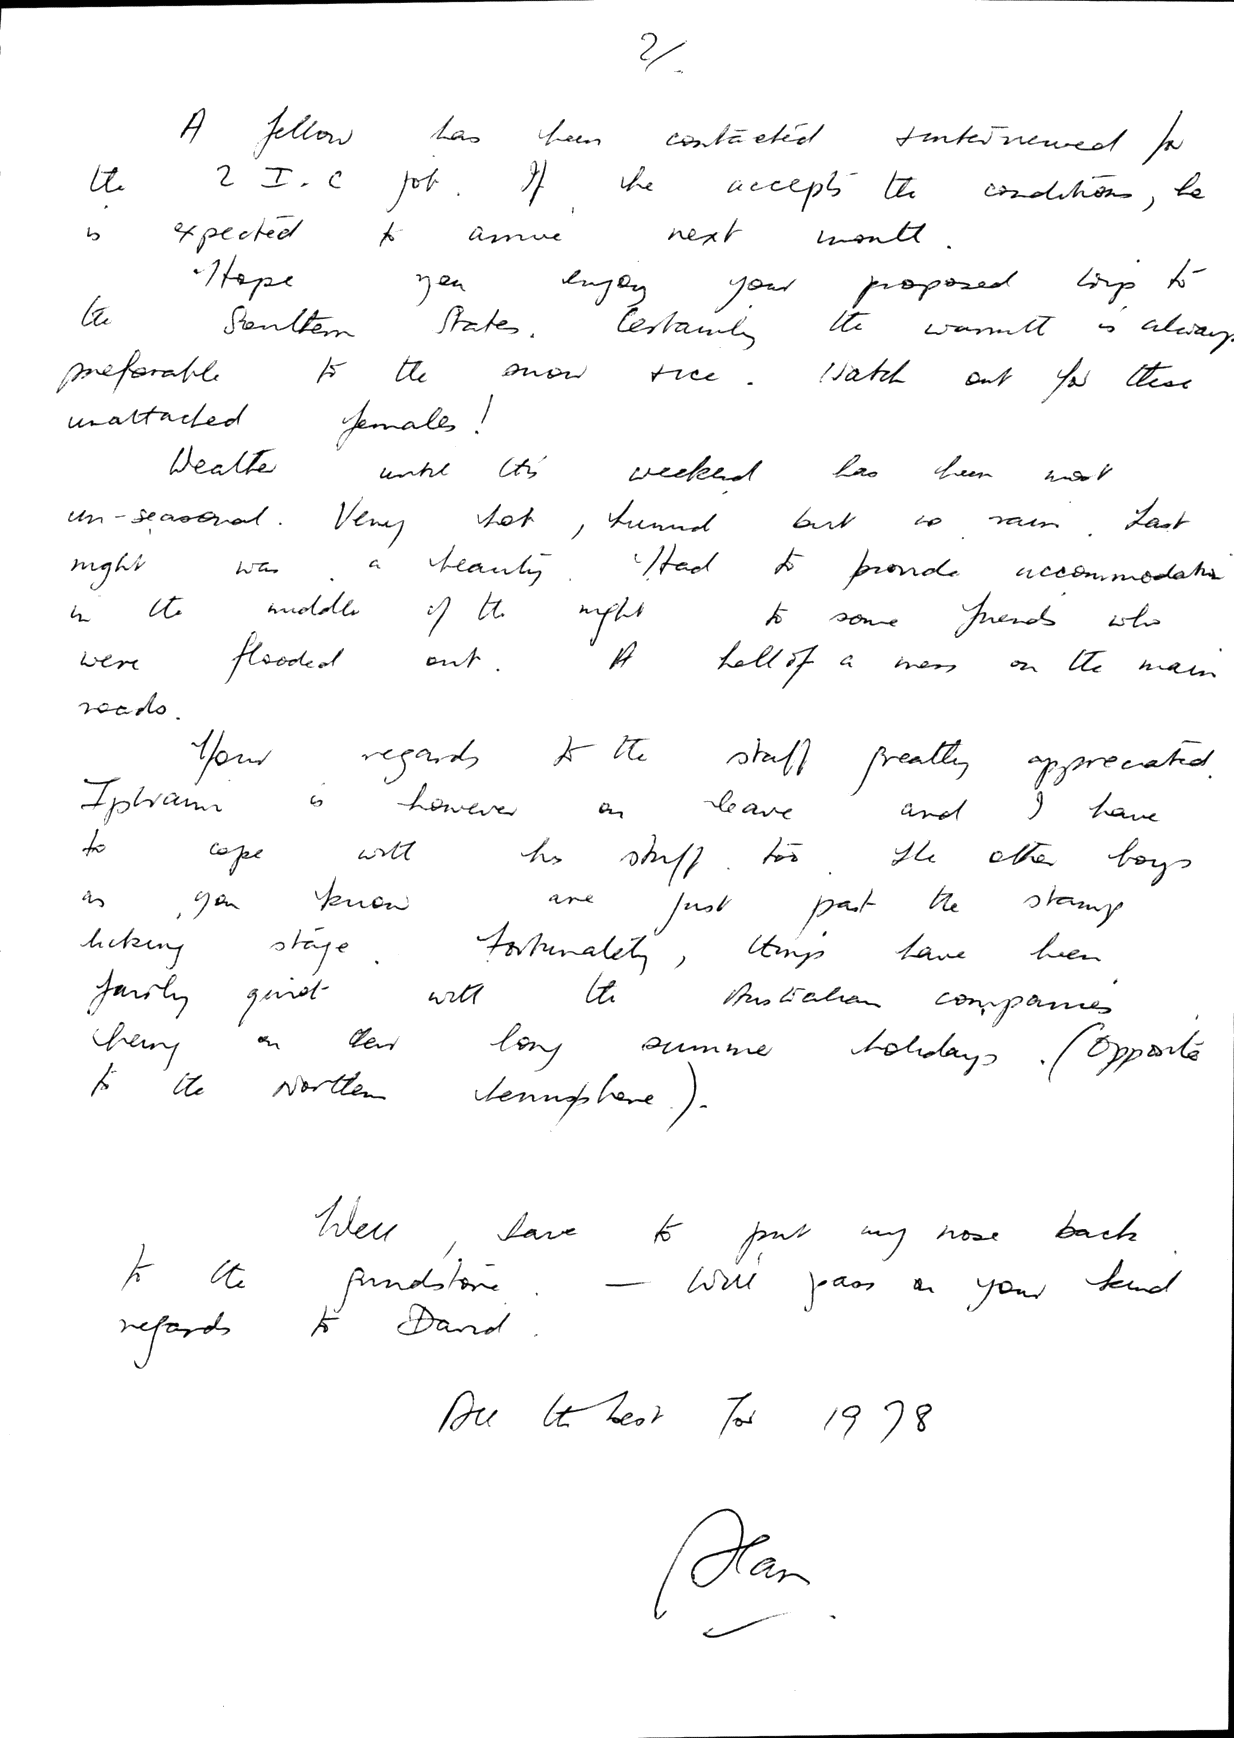 2/.
A fellow has been contacted + interviewed for
the 2 I.C job. If he accepts the conditions, he
is expected to arrive next month.
Hope you enjoy your proposed trip to
the Southern States. Certainly the warmth is always
preferable to the snow + ice. Watch out for these
unattached females!
Weather until this weekend has been most
un-seasonal. Very hot, humid but no rain. Last
night was a beauty. Had to provide accommodation
in the middle of the night to some friends who
were flooded out. A hell of a mess on the main
roads.
Your regards to the staff greatly appreciated.
is however on leave and I have
to cope with his stuff too. The other boys
as you know are just past the stamp
licking stage. Fortunately, things have been
fairly quiet with the Australian companies
being on their long summer holidays. (Opposite
to the Northern hemisphere).
Well, have to put my nose back
to the grindstone. — Will pass on your kind
regards to David.
All the best for 1978
Alan